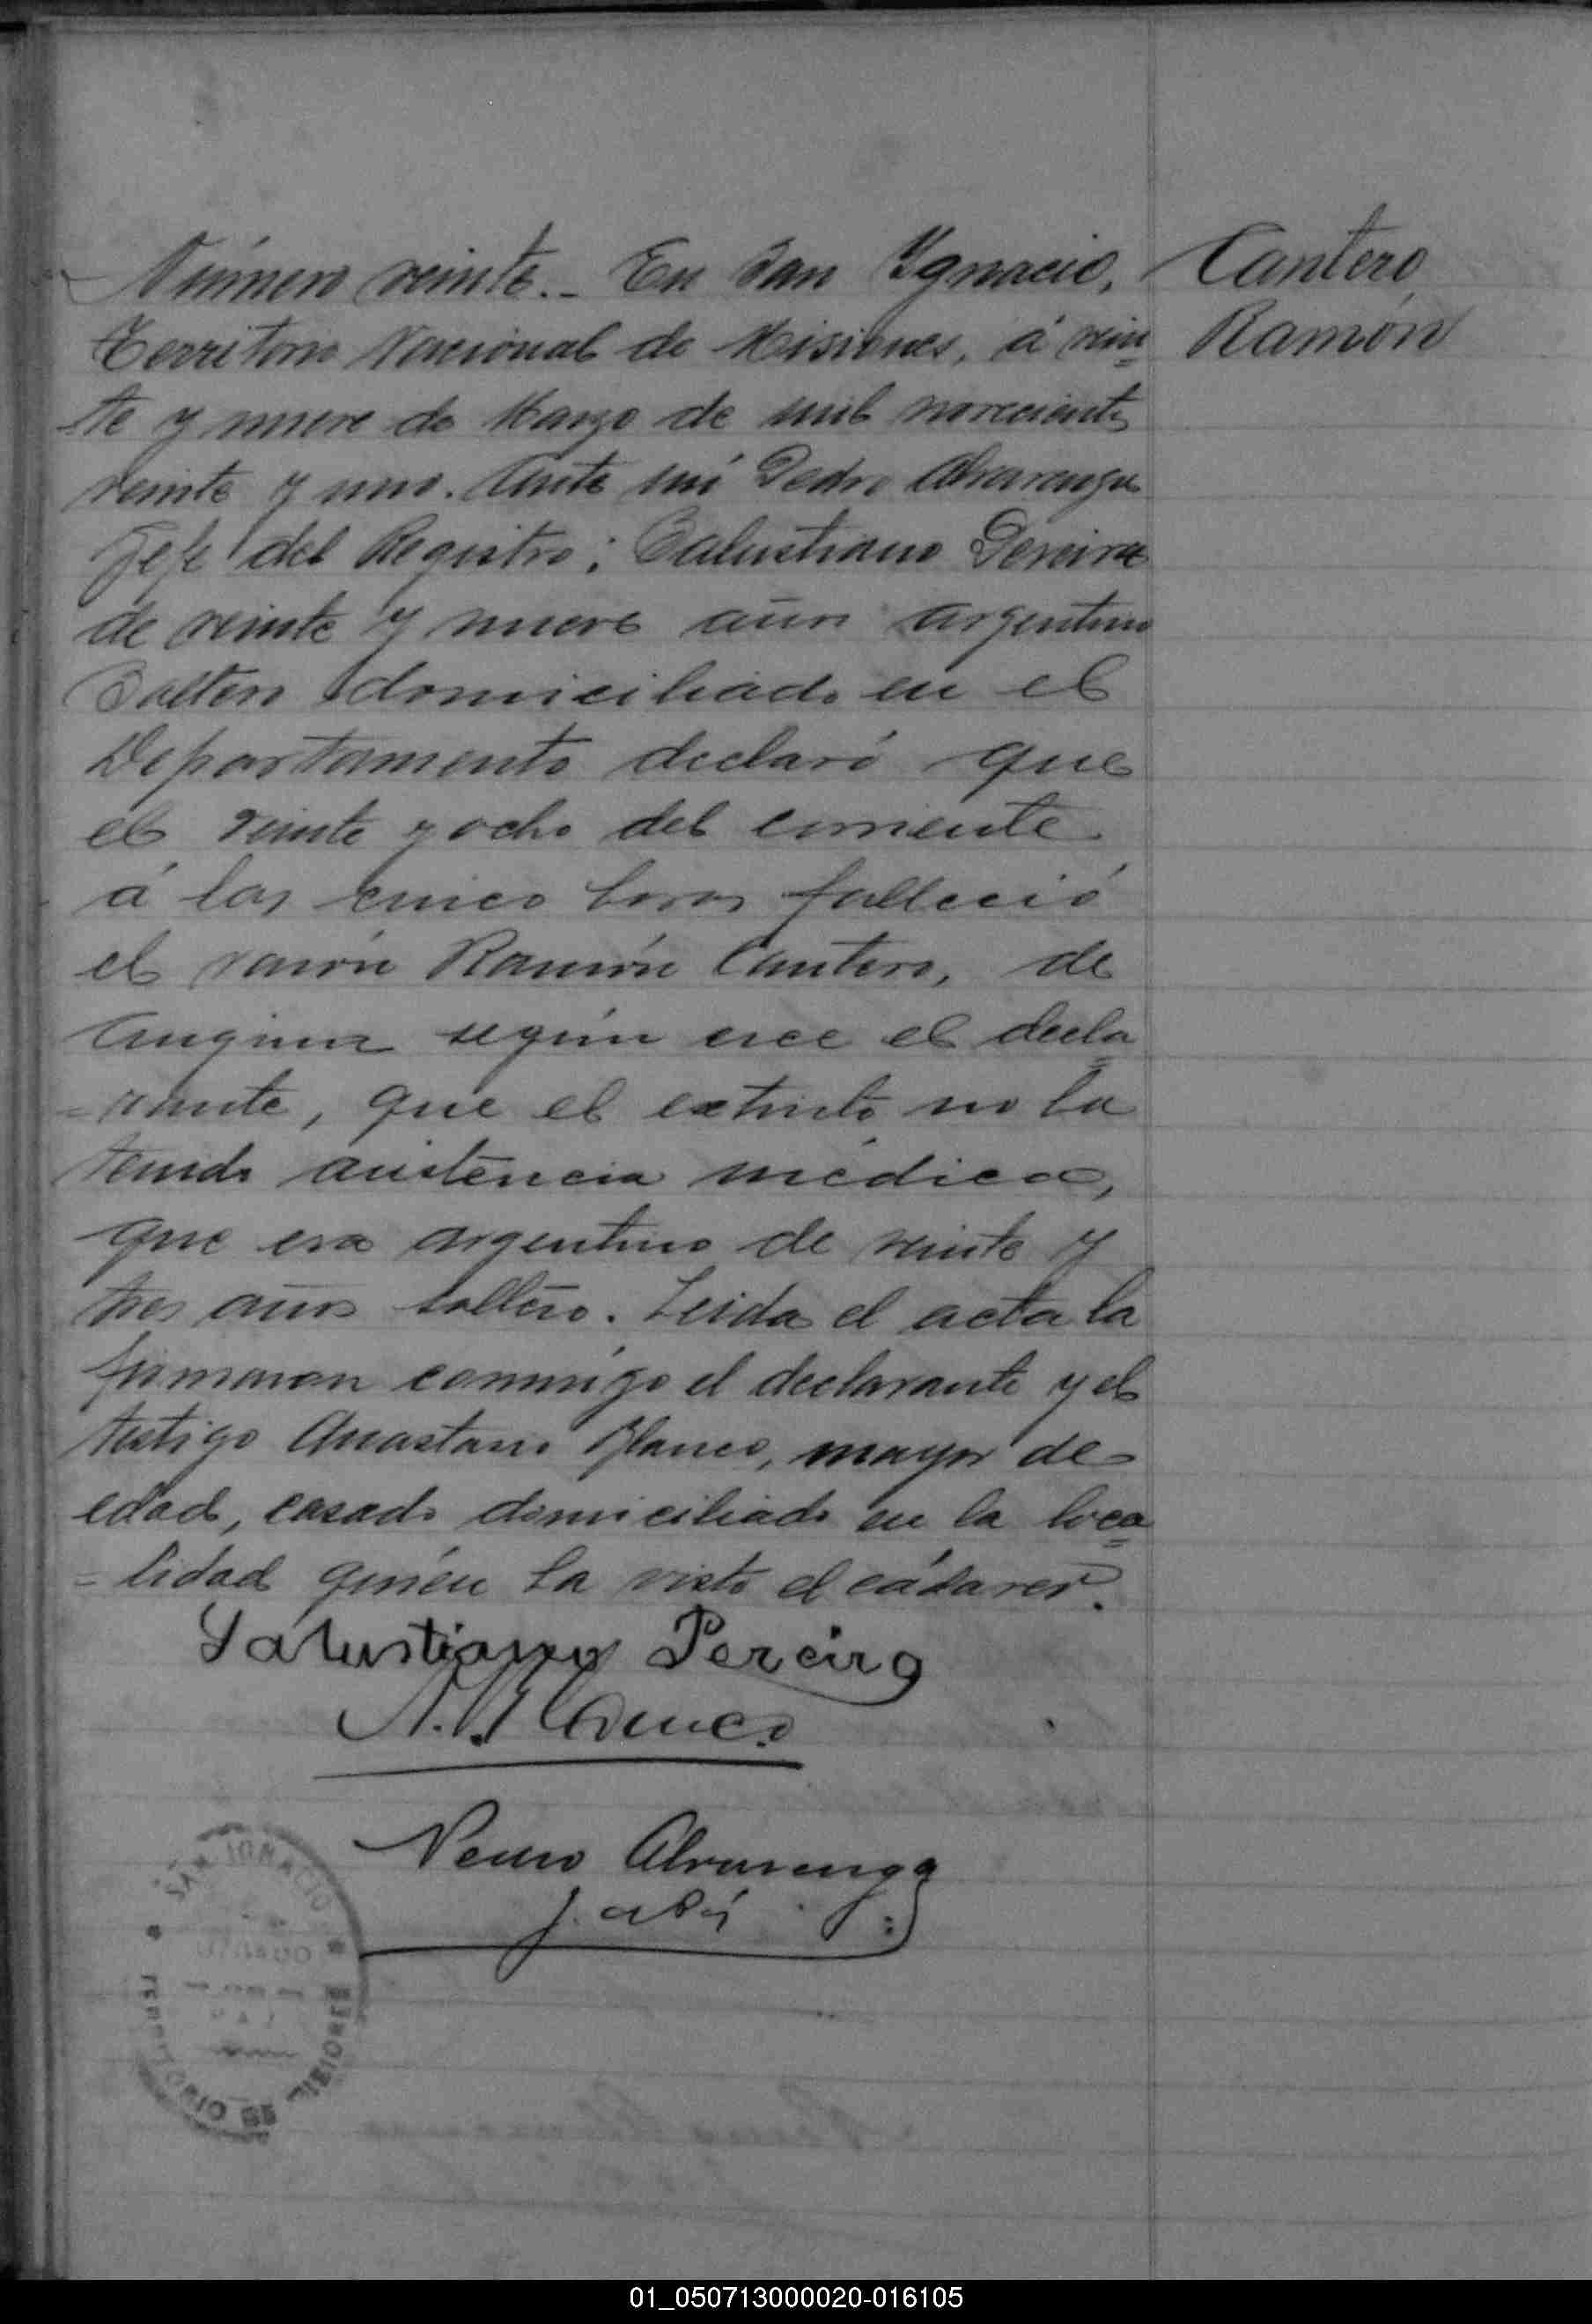 Cantero
Ramón
Número veinte.- En San Ygnacio,
Territorio Nacional de Misiones, á vein
te y nueve de Marzo de mil novecientos
veinte y uno. Ante mí Pedro Alvarenga
Jefe del Registro; Salustiano Pereira
de veinte y nueve años argentino
Soltero domiciliado en el
Departamento declaró que
el veinte y ocho del corriente
á las cinco horas falleció
el varón Ramón Cantero, de
Angina según cree el decla
=rante, que el extinto no ha
tenido asistencia médica,
que era argentino de veinte y
tres años soltero. Leida el acta la
firmaron conmigo el declarante y el
testigo Anastacio Blanco, mayor de
edad, casado domiciliado en la loca
=lidad quién ha visto el cádaver.
Salustiano Pereira
A. Blanco
Pedro Alvarenga
SAN IGNACIO
TERRITORIO DE MISIONES
01_050713000020-016105